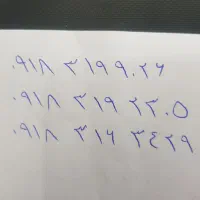 ۰۹۱۸ ۳۱۹۹۰۲۶
۰۹۱۸ ۳۱۹ ۲۳۰۵
۰۹۱۸ ۳۱۶ ۳۴۲۹